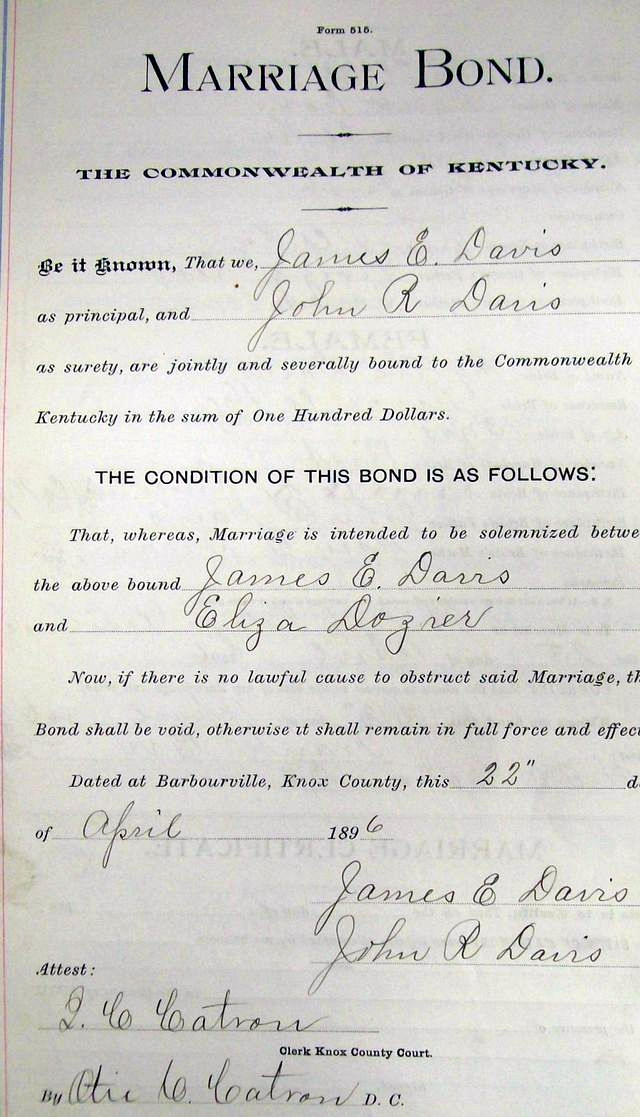 Form 515.
MARRIAGE BOND.
THE COMMONWEALTH OF KENTUCKY.
Be it Known, That we, James E. Davis
as principal, and John R Davis
as surety, are jointly and severally bound to the Commonwealth
Kentucky in the sum of One Hundred Dollars.
THE CONDITION OF THIS BOND IS AS FOLLOWS:
That, whereas, Marriage is intended to be solemnized betwe
the above bound James E. Davis
and Eliza Dozier
Now, if there is no lawful cause to obstruct said Marriage, th
Bond shall be void, otherwise it shall remain in full force and effec
Dated at Barbourville, Knox County, this 22" d
of April 1896
James E Davis
John R Davis
Attest:
C Catron
Clerk Knox County Court.
By C. Catron D. C.